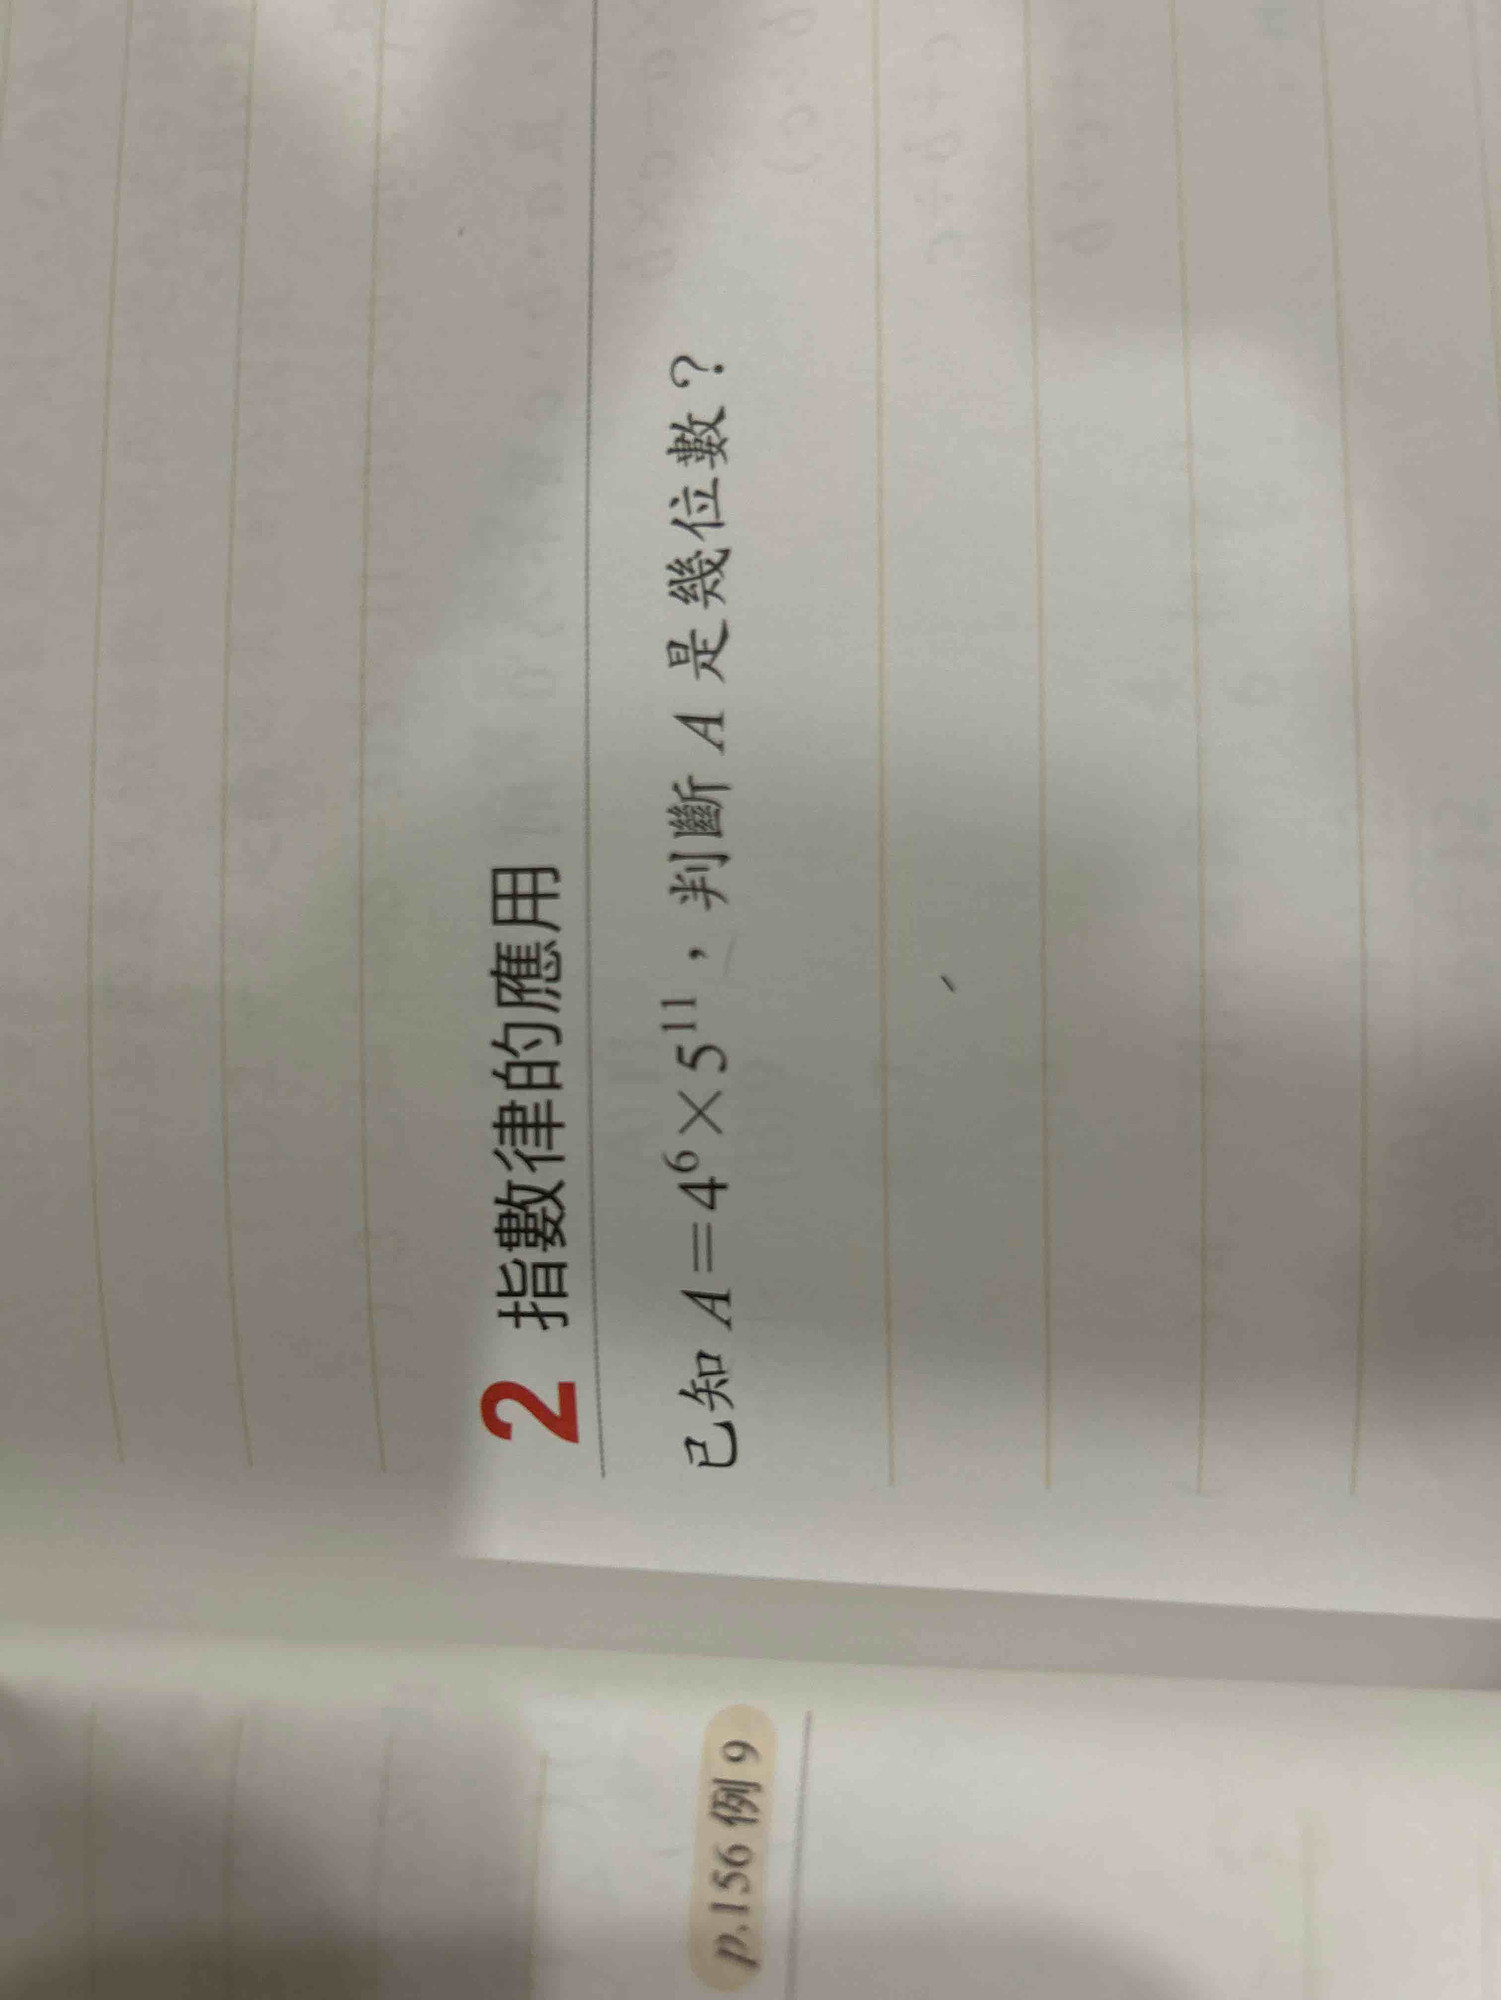 2 指數律的應用
已知 A=4⁶×5¹¹，判斷 A 是幾位數？
p.156 例 9